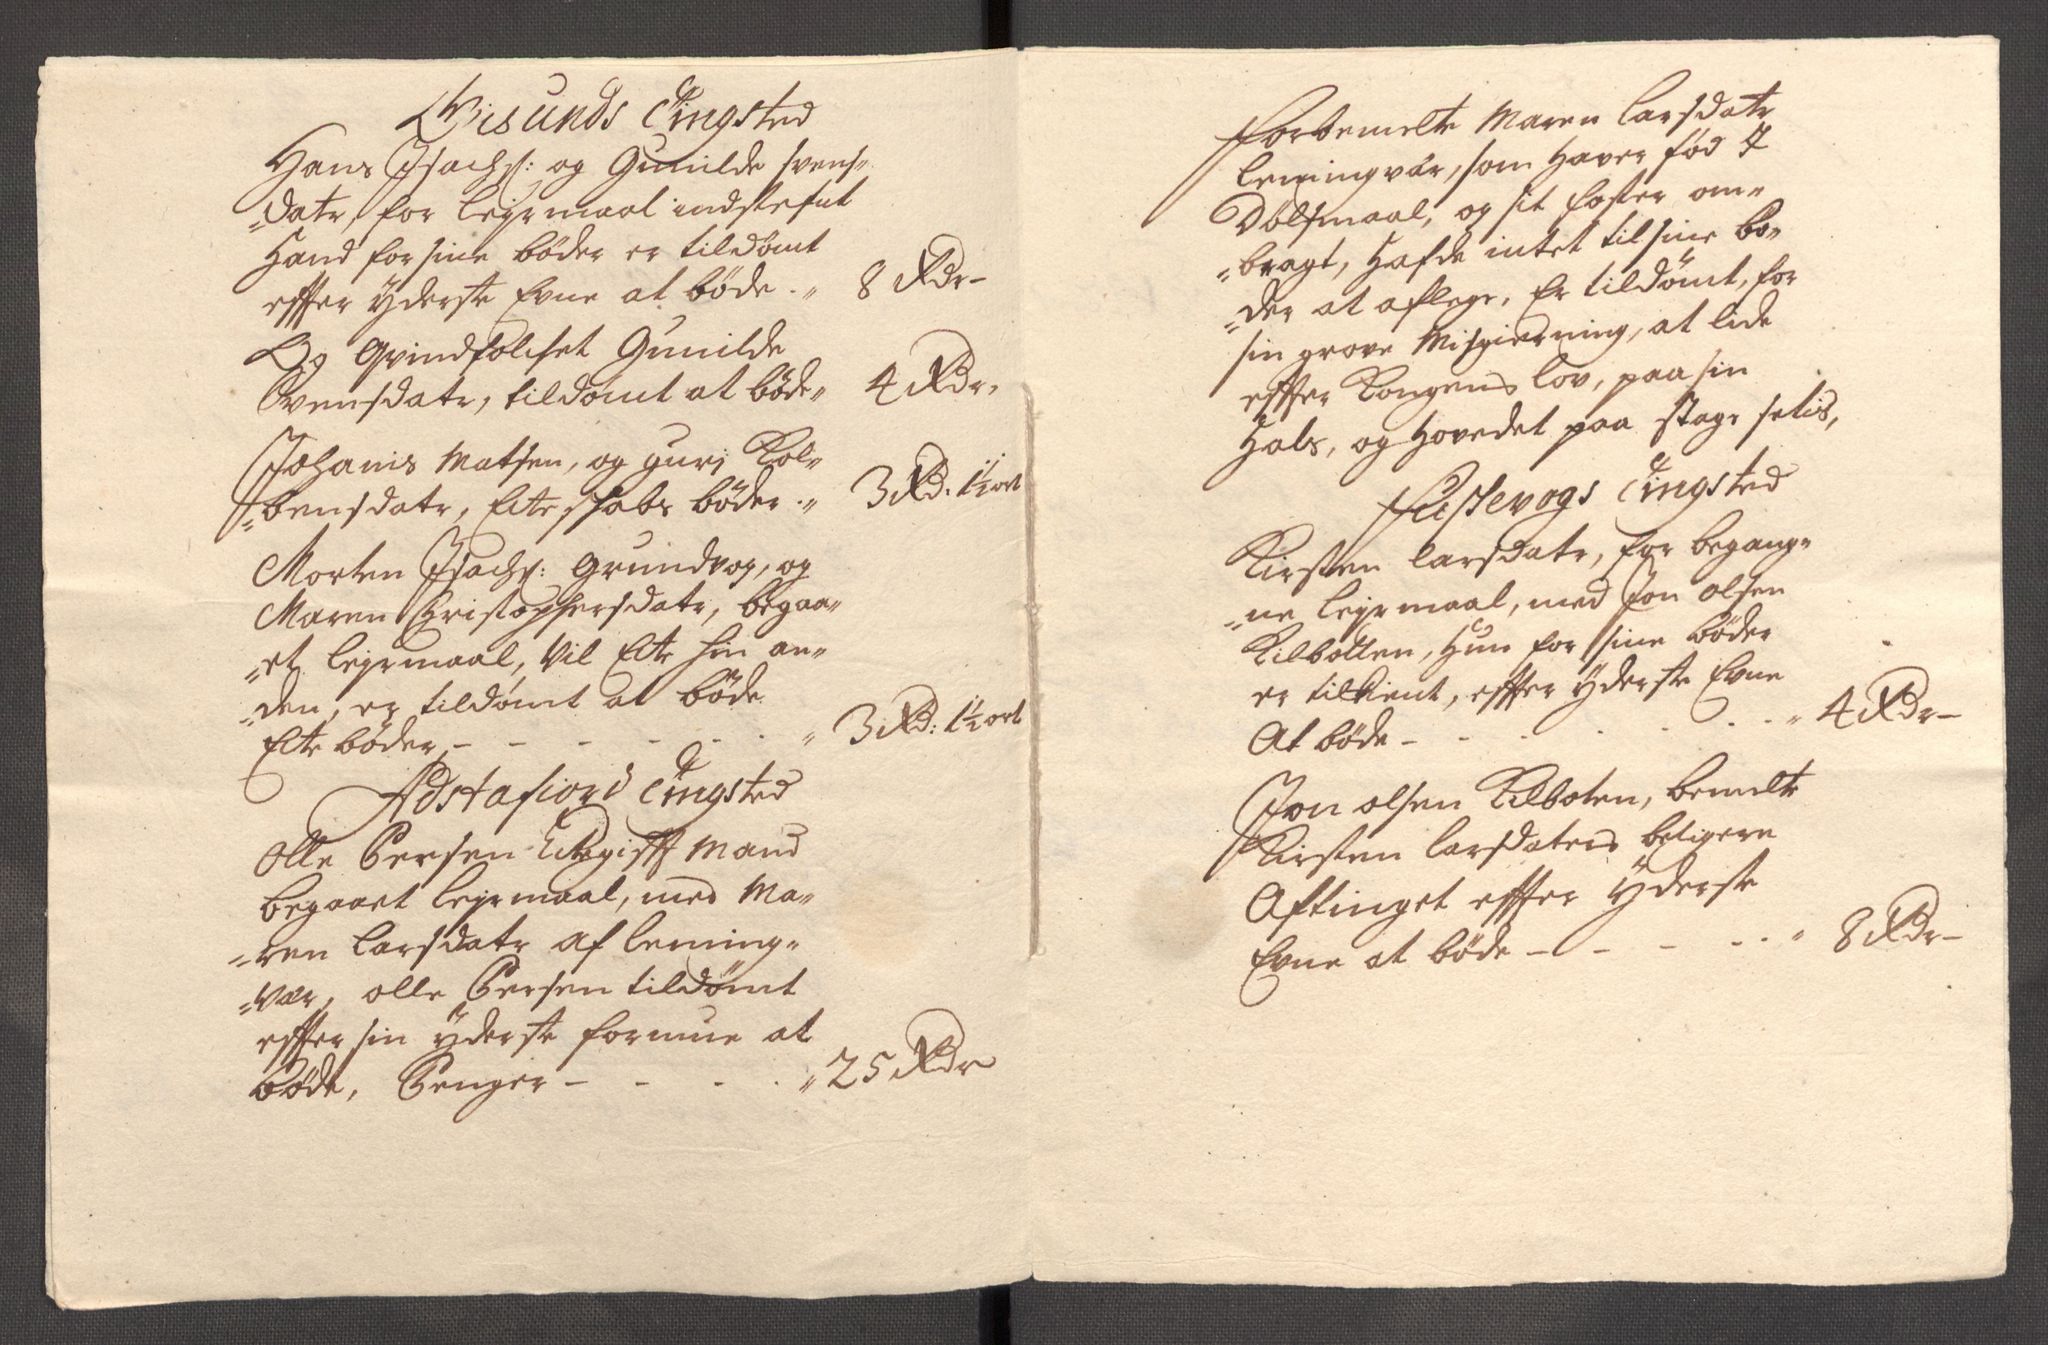 Gisunds Tingsted
Hans Isachs: og Gunilde Svens=
=datr, for lejermaal indstefnt
Hand for sine bøder er tildømt
effter Yderste Evne at bøde .„ 8 Rdr–
Og Qvindfolchet Gunilde
Svensdatr, tildømt at bøde„ 4 Rdr,
Johanis Matsen, og gurj Kol=
=bensdatr, Ecteschabs bøder .„ 3 Rd: 1½ ort
Morten Isachs: Grundvog, og
Maren Christophersdatr, begaa=
=et lejrmaal, vil Ecte hin an=
=den, er tildømt at bøde
Ecte bøder – – – – – . „ 3 Rd: 1½ ort
Astafiord Tingsted
Olle Persen Ectegifft Mand
begaaet lejrmaal, med Ma=
=ren larsdatr af leming=
=vær, olle Persen tildømt
effter sin Yderste formue at
bøde, Penger – – – . . „ 25 Rdr
Forbemelte Maren larsdatr
lemingvær, som haver fød J
Dølsmaal, og sit foster om=
=bragt, Hafde intet til sine bø=
=der at aflege, Er tildømt, for
sin grove Misgierning, at lide
effter Kongens lov, paa sin
Hals, og Hovedet paa stage setis,
Fuskevogs Tingsted
Kirsten larsdatr, for begang=
=ne lejrmaal, med Jon olsen
Kilbotten, Hun for sine bøder
er tilkient, effter Yderste Evne
At bøde – – . . . . – „ 4 Rdr–
Jon olsen Kilboten, bemelte
Kirsten larsdaters beligere
Aftinget effter Yderste
Evne at bøde – – – . . „ 8 Rdr–